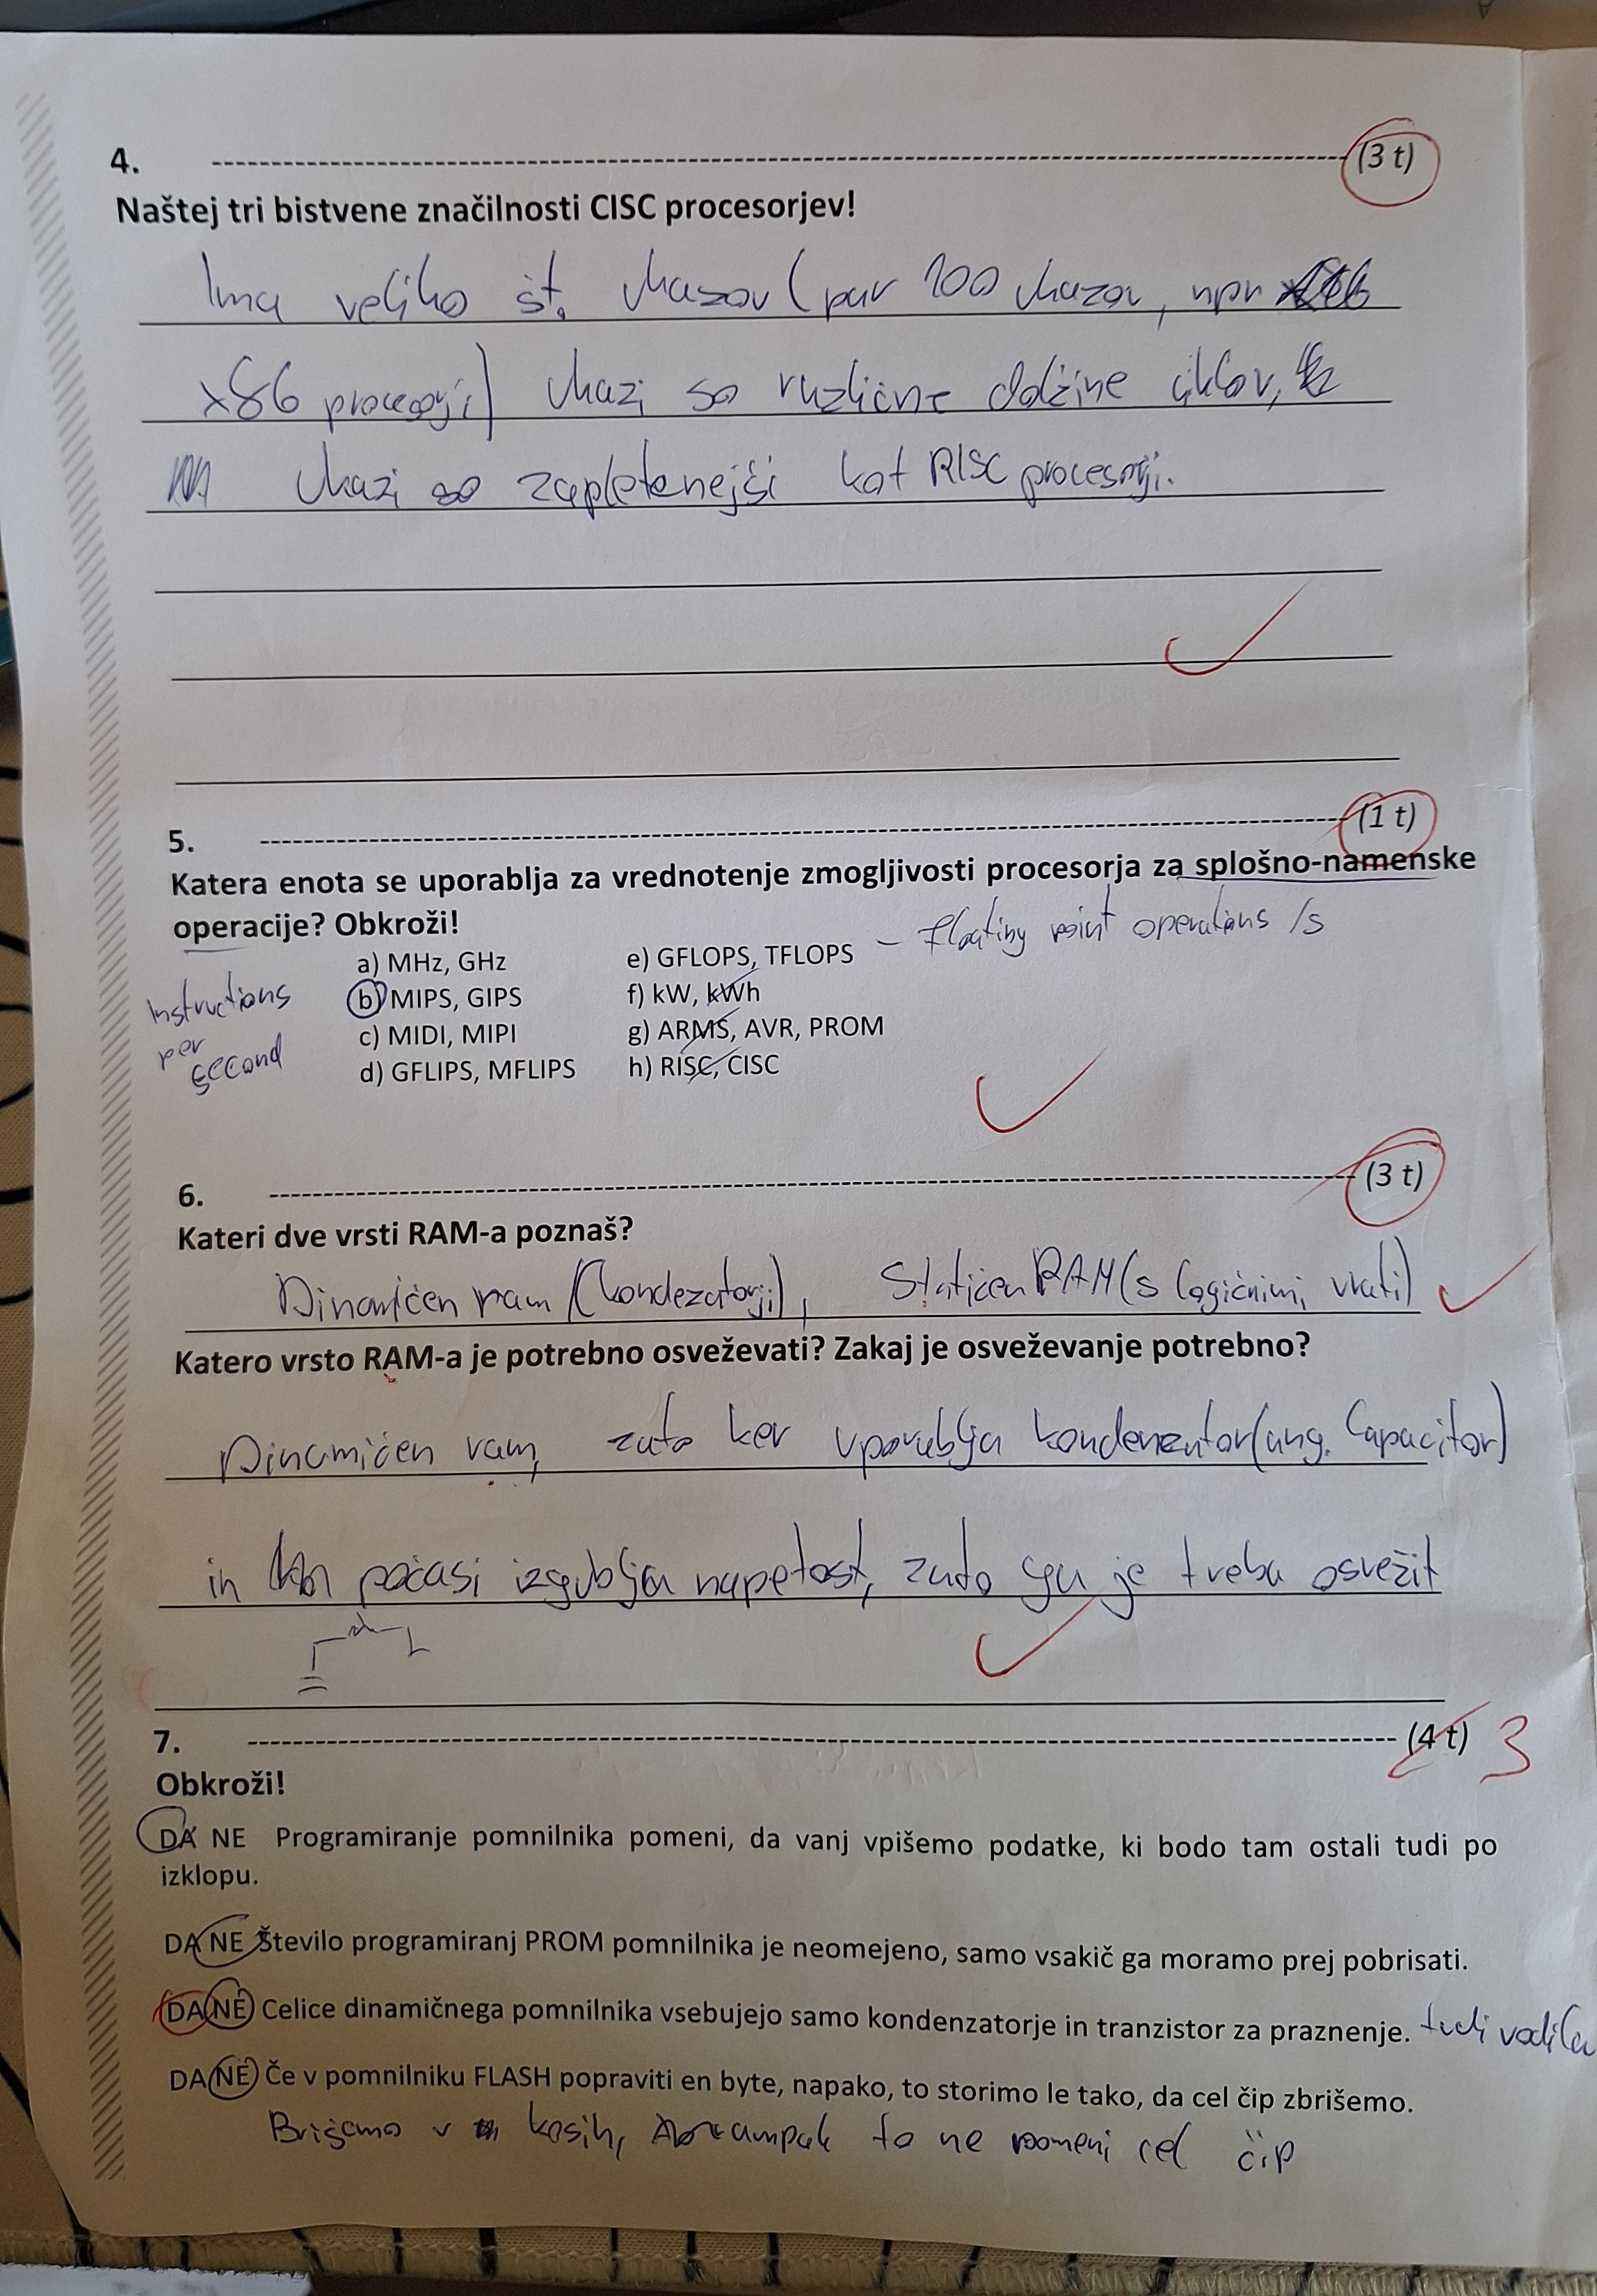 4. (3 t)
Naštej tri bistvene značilnosti CISC procesorjev!
Ima veliko št. ukazov (par 100 ukazov, npr
x86 procesorji) Ukazi so različne dolžine ciklov,
Ukazi so zapletenejši kot RISC procesorji.
5. (1 t)
Katera enota se uporablja za vrednotenje zmogljivosti procesorja za splošno-namenske
operacije? Obkroži!
a) MHz, GHz
b) MIPS, GIPS
c) MIDI, MIPI
d) GFLIPS, MFLIPS
e) GFLOPS, TFLOPS – floating point operations /s
f) kW, kWh
g) ARMS, AVR, PROM
h) RISC, CISC
Instructions
per
second
6. (3 t)
Kateri dve vrsti RAM-a poznaš?
Dinamičen ram (kondezatorji), Statičen RAM (s logičnimi vrati)
Katero vrsto RAM-a je potrebno osveževati? Zakaj je osveževanje potrebno?
Dinamičen ram, zato ker uporablja kondenzator (ang. Capacitor)
in počasi izgublja napetost, zato ga je treba osvežit
7. (4 t) 3
Obkroži!
DA NE Programiranje pomnilnika pomeni, da vanj vpišemo podatke, ki bodo tam ostali tudi po
izklopu.
DA NE Število programiranj PROM pomnilnika je neomejeno, samo vsakič ga moramo prej pobrisati.
DA NE Celice dinamičnega pomnilnika vsebujejo samo kondenzatorje in tranzistor za praznenje. tudi vodila
DA NE Če v pomnilniku FLASH popraviti en byte, napako, to storimo le tako, da cel čip zbrišemo.
Brišemo v kosih, ampak to ne pomeni cel čip